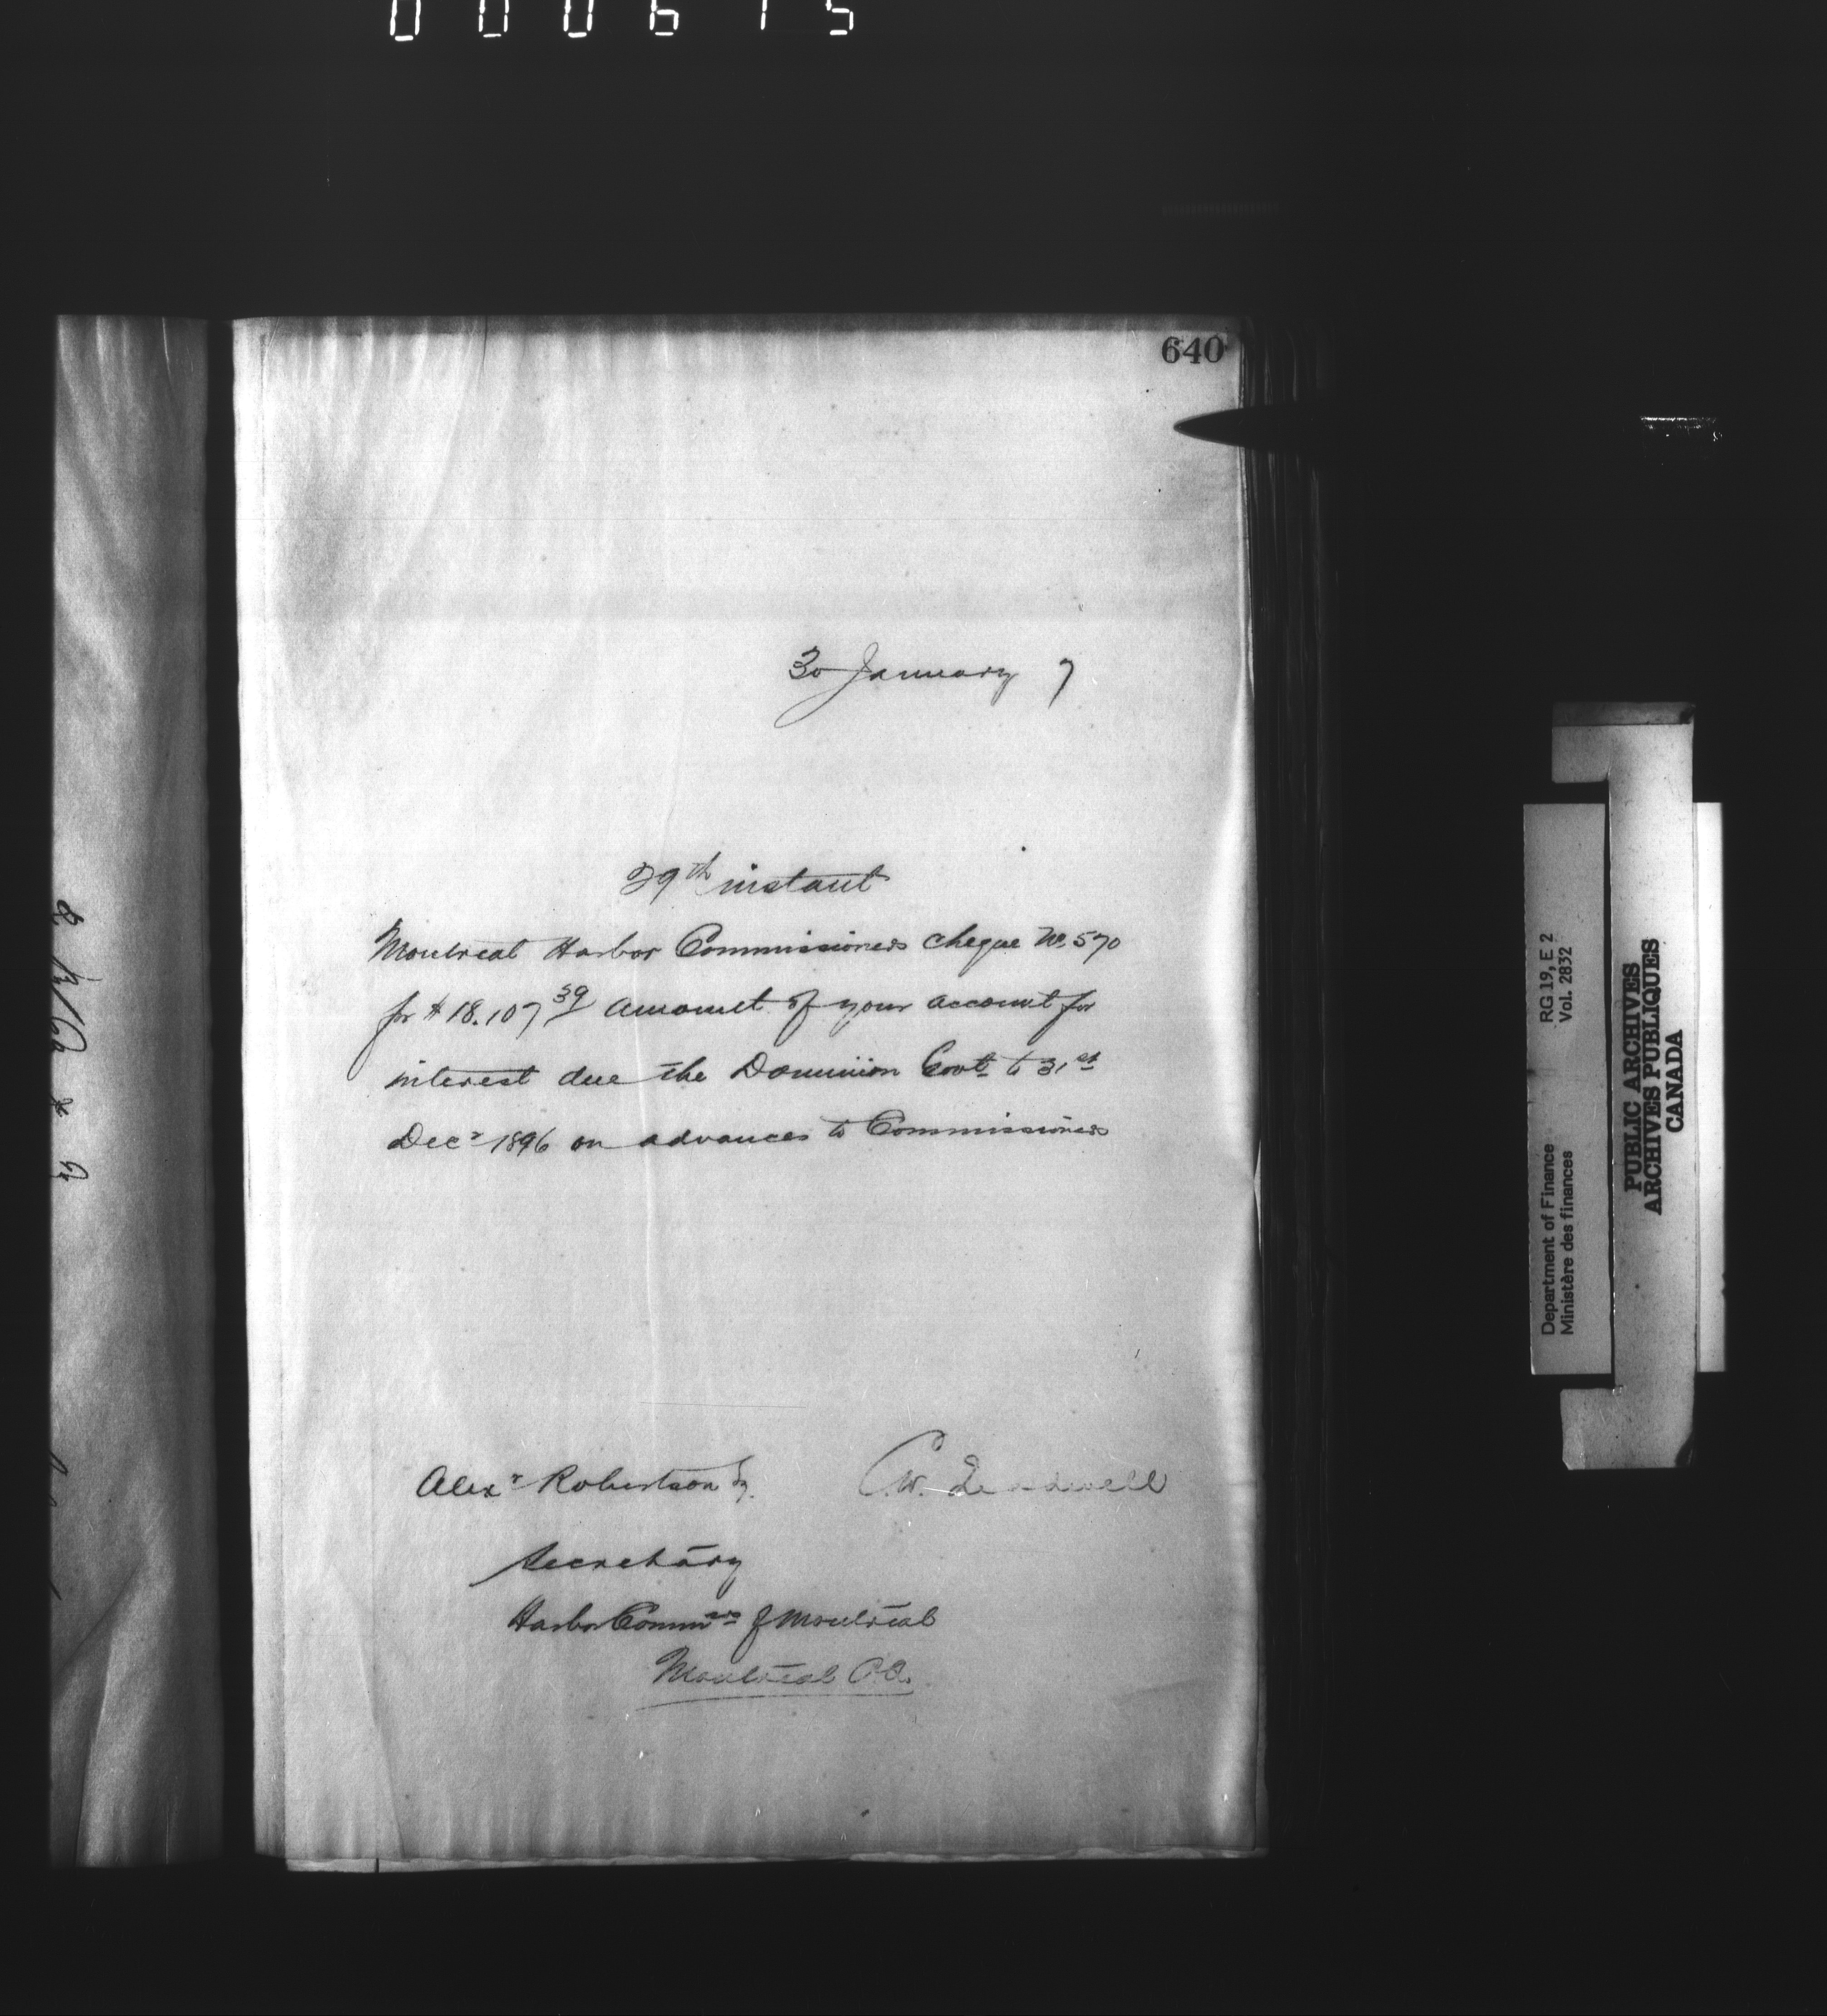 000615
640
30 January 7
29th instant
Montreal Harbor Commissioners cheque No. 570
for $18.107 39 amount of your account for
interest due the Dominion Govt. to 31st
Decr 1896 on advances to Commissioners
Alexr Robertson Esq.
C.W. Treadwell
Secretary
Harbor Commrs of Montreal
Montreal P.Q.
Department of Finance RG 19, E 2
Ministère des finances Vol. 2832
PUBLIC ARCHIVES
ARCHIVES PUBLIQUES
CANADA